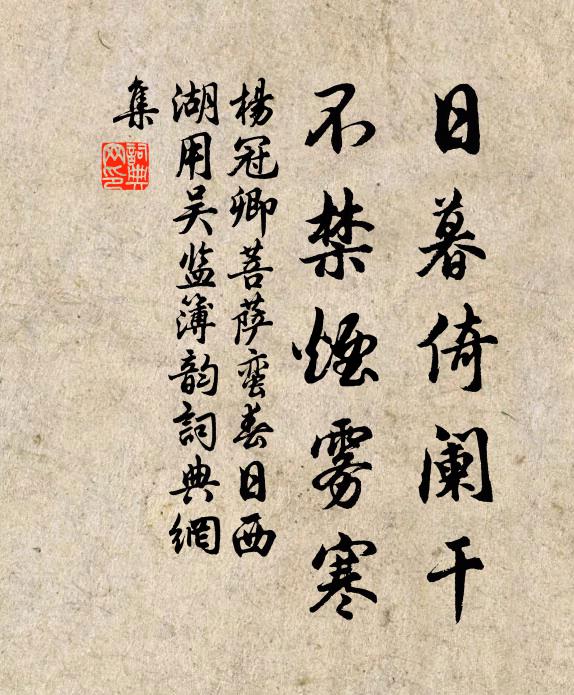 日暮倚阑干
不禁煙雾寒
楊冠卿菩萨蛮春日西
湖用吴监簿韵詞典網
集
詞典网印